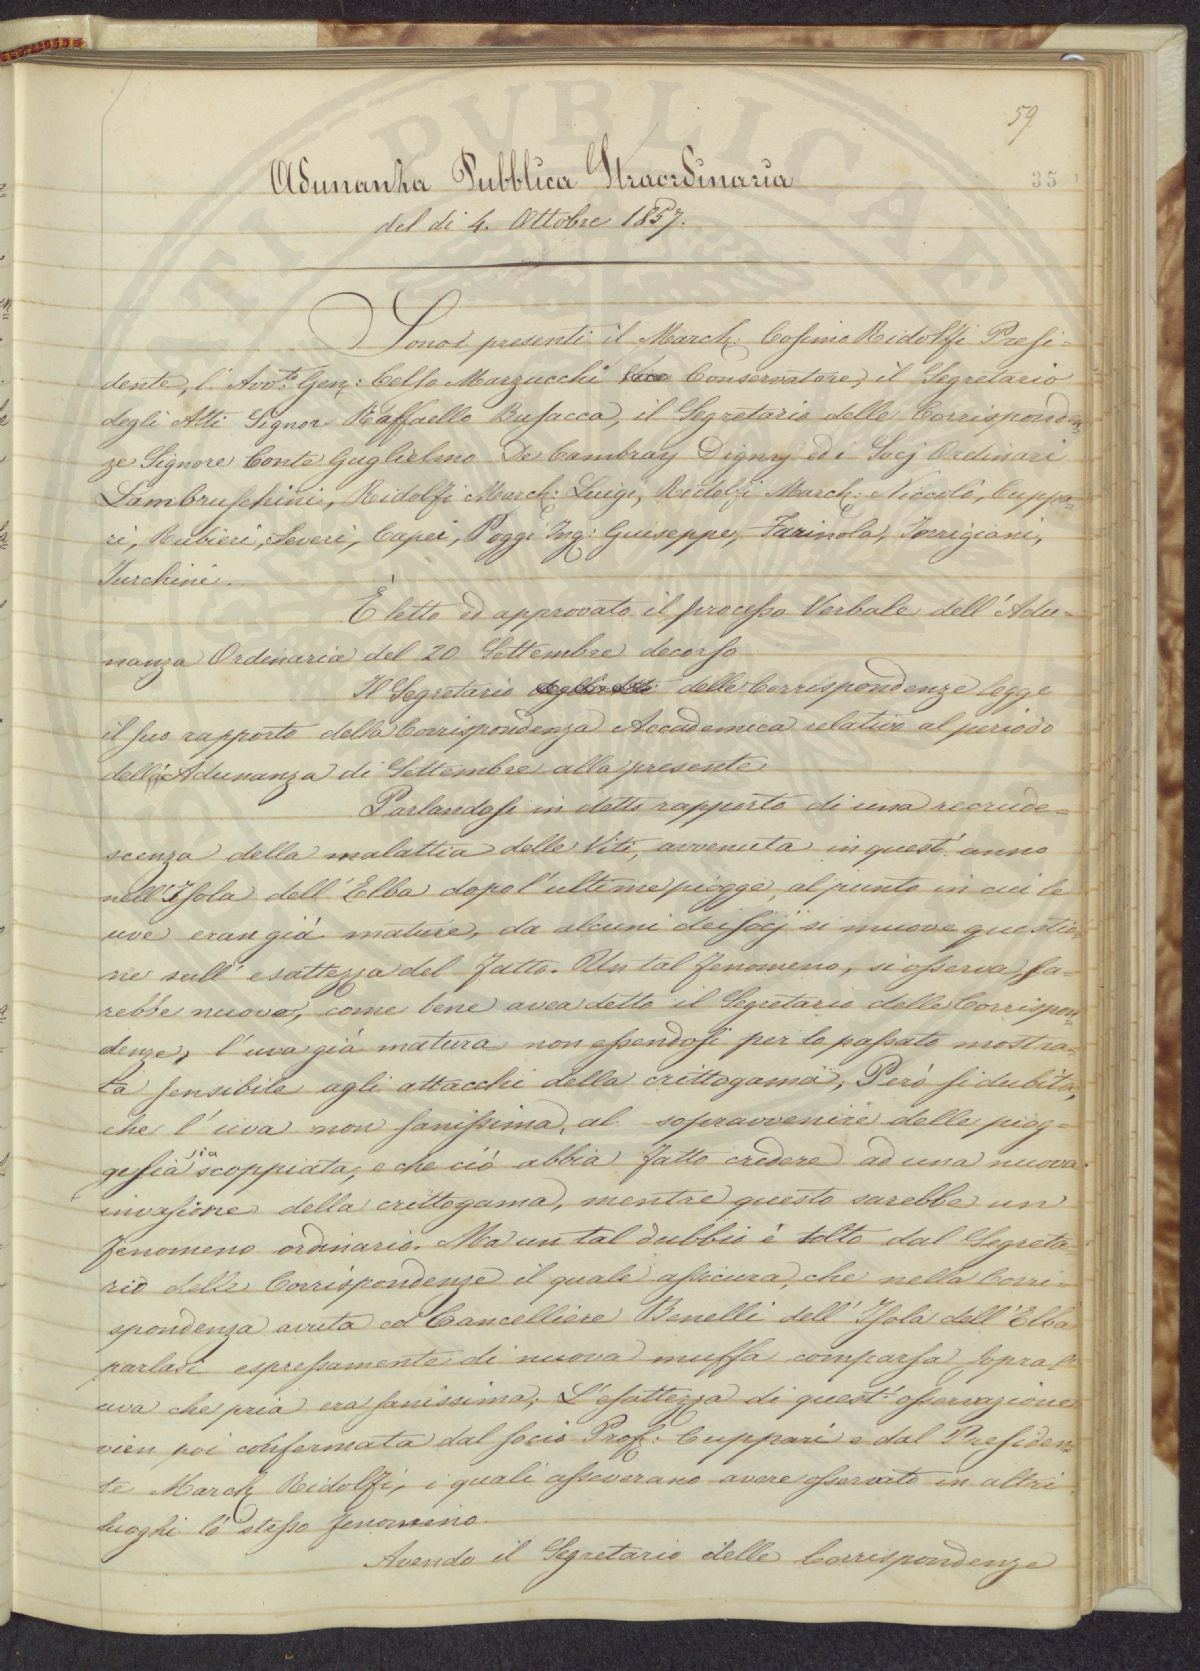 59
35
Adunanza Pubblica Straordinaria
del di 4. Ottobre 1857.
Sono presenti il March: Cosimo Ridolfi Presi-
dente, l'Avvto. Gen: Celso Marzucchi Conservatore, il Segretario
degli Atti Signor Raffaello Busacca, il Segretario delle Corrisponden-
ze Signore Conte Guglielmo De Cambray Digny ed i Socj Ordinari
Lambruschini, Ridolfi March: Luigi, Ridolfi March: Niccolò, Cuppa-
ri, Rubieri, Severi, Capei, Poggi Ing: Guiseppe, Farinola, Torrigiani,
Turchini.
È letto ed approvato il processo Verbale dell'Adu-
nanza Ordinaria del 20 Settembre decorso
Il Segretario degli Atti delle Corrispondenze legge
il suo rapporto della Corrispondenza Accademica relativo al periodo
dell'Adunanza di Settembre alla presente
Parlandosi in detto rapporto di una recrude-
scenza della malattia delle Viti, avvenuta in quest'anno
nell'Isola dell'Elba dopo l'ultime piogge, al punto in cui le
uve eran già mature, da alcuni dei socj si muove questio-
ne sull'esattezza del fatto. Un tal fenomeno, si osserva, sa-
rebbe nuovo, come bene avea detto il Segretario delle Corrispon-
denze, l'uva già matura non essendosi per lo passato mostra-
ta sensibile agli attacchi della crittogama; Però si dubita,
che l'uva non sanissima, al sopravvenire delle piog-
ge sia scoppiata, e che ciò abbia fatto credere ad una nuova
sia
invasione della crittogama, mentre questo sarebbe un
fenomeno ordinario. Ma un tal dubbio è tolto dal Segreta-
rio delle Corrispondenze il quale assicura, che nella Corri-
spondenza avuta col Cancelliere Benelli dell'Isola dell'Elba
parlasi espressamente di nuova muffa comparsa sopra l'
uva che pria era sanissima; L'esattezza di quest'osservazione
vien poi confermata dal socio Prof: Cuppari e dal Presiden-
te March Ridolfi, i quali asseverano avere osservato in altri
luoghi lo stesso fenomeno.
Avendo il Segretario delle Corrispondenze